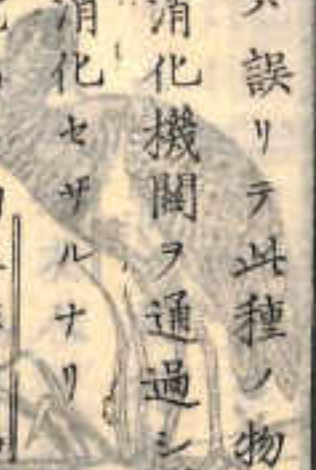 誤リテ此種ノ物
消化機關ヲ通過シ
消化セザルナリ